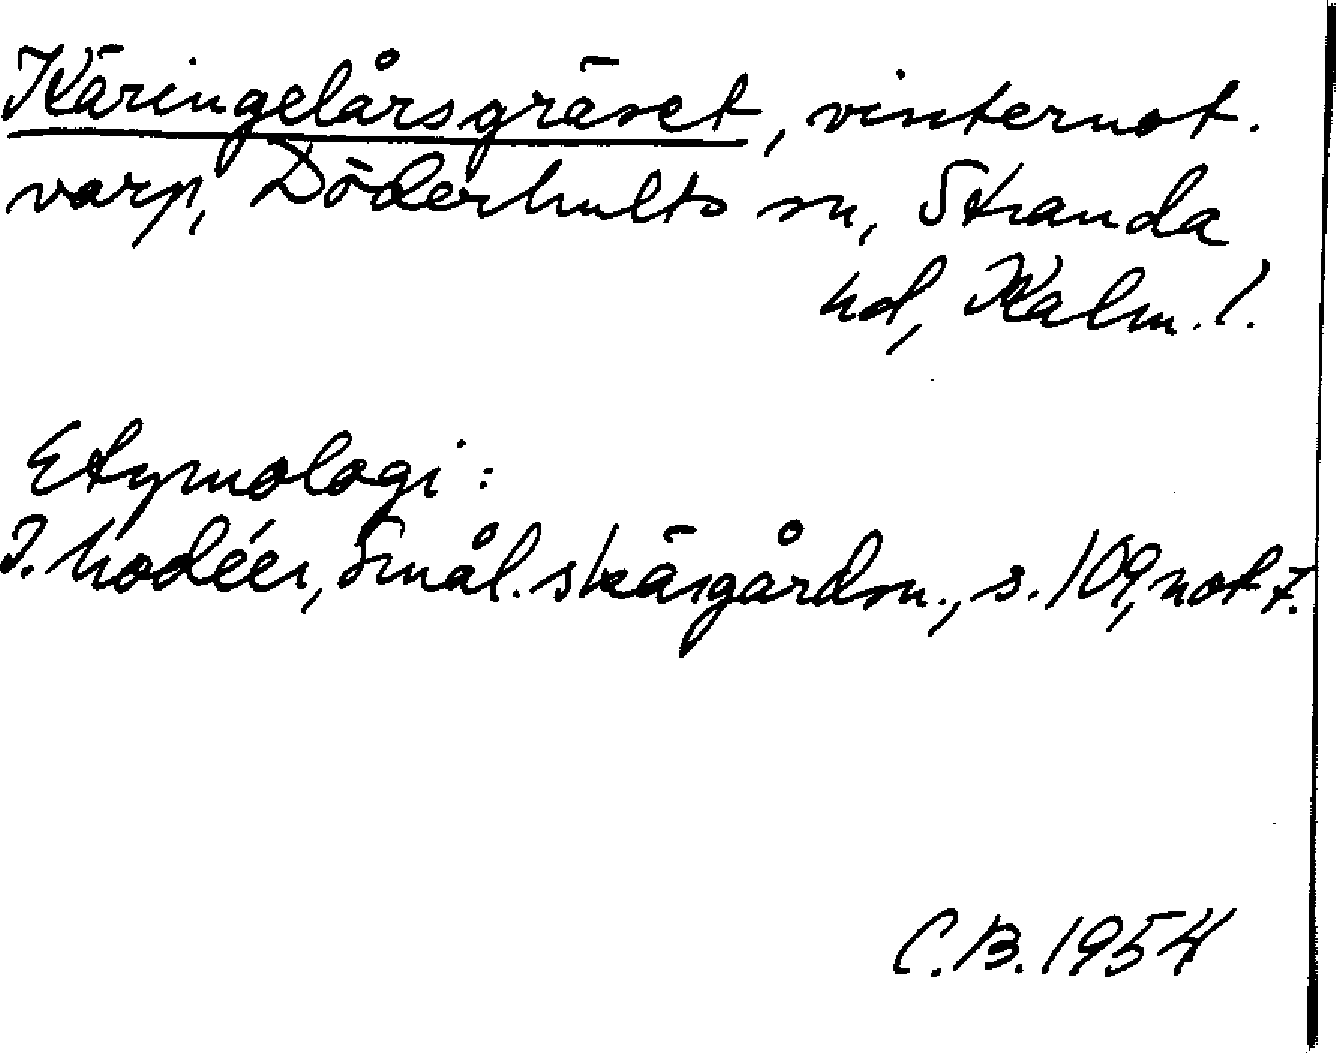 Käringelårsgräset, vinternot.
varp, Döderhults sn, Stranda
hd, Kalm. l.
Etymologi:
I. Modéer, Smål. skärgårdsn., s. 109, not 7.
C.B. 1954